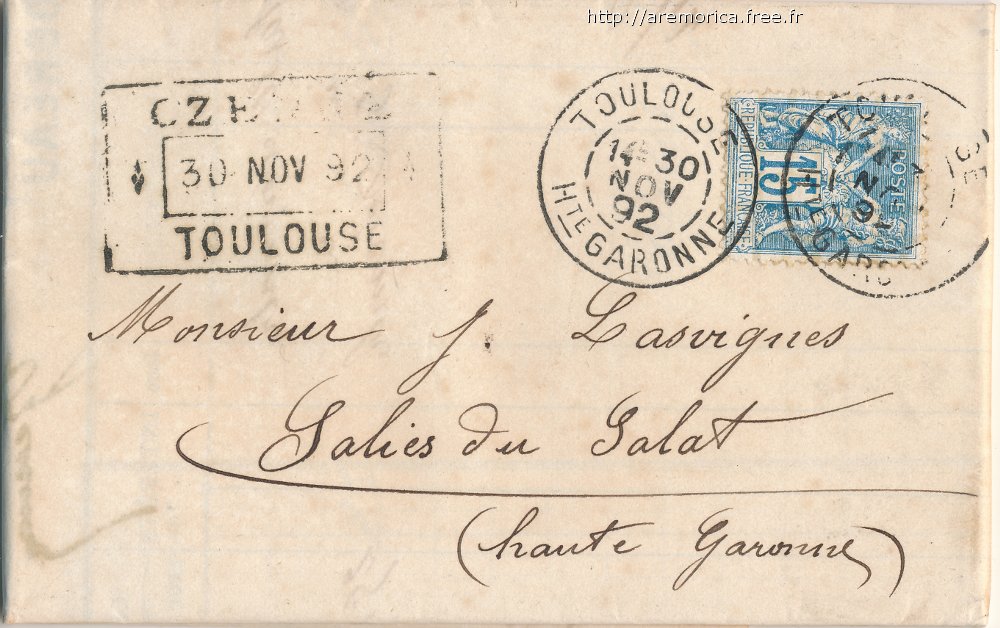 http://aremorica.free.fr
30 NOV 92
TOULOUSE
TOULOUSE
30
NOV
92
HTE GARONNE
POSTES
15
REPUBLIQUE FRANCAISE
Monsieur J. Lasvignes
Salies du Salat
(haute Garonne)